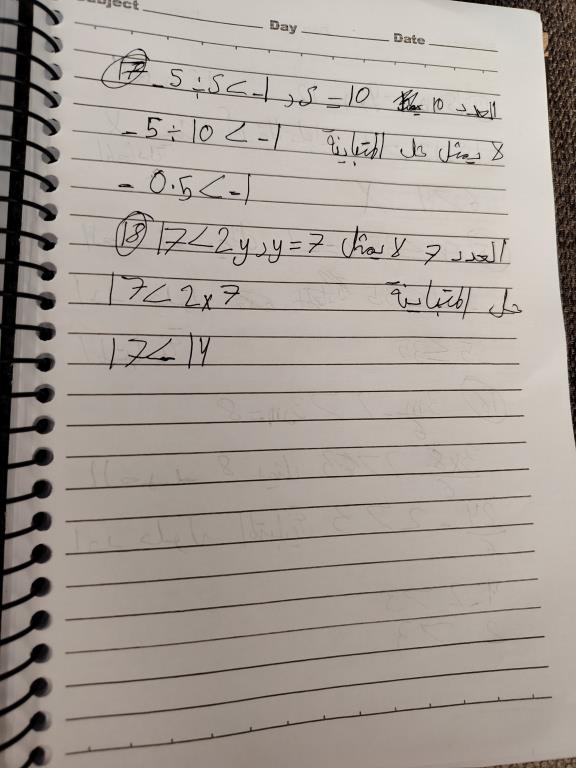 Subject Day Date
17 - 5 ÷ s < -1 , s = 10 العدد 10
- 5 ÷ 10 < -1 لا يمثل حل المتباينة
- 0.5 < -1
18 17 < 2y , y = 7 العدد 7 لا يمثل
17 < 2 x 7 حل المتباينة
17 < 14